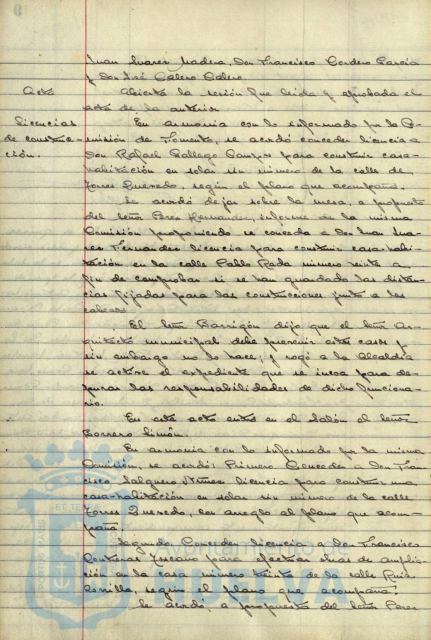 Juan Suarez Madera, Don Francisco Cordero Garcia
y Don José Calero Calero.
Acta Abierta la sesión fue leida y aprobada el
acta de la anterior.
Licencias En armonia con lo informado por la Co-
de construc- misión de Fomento, se acordó conceder licencia a
ción. Don Rafael Gallego Campos para construir casa-
habitación en solar sin número de la calle de
Torres Quevedo, según el plano que acompaña.
Se acordó dejar sobre la mesa, a propuesta
del señor Perez Hernandez, informe de la misma
Comisión proponiendo se conceda a Don Juan Sua-
rez Fernandez licencia para construir casa-habi-
tación en la calle Pablo Rada número veinte a
fin de comprobar si se han guardado las distan-
cias fijadas para las construcciones junto a los
El señor Barrigón dijo que el señor Ar-
quitecto municipal debe prevenir estos casos y
sin embargo no lo hace, y rogó a la Alcaldia
se active el expediente que se incoa para de-
purar las responsabilidades de dicho funciona-
rio.
En este acto entra en el salón el señor
Borrero Limón.
En armonia con lo informado por la misma
Comisión, se acordó: Primero. Conceder a Don Fran-
cisco Salguero licencia para construir una
casa-habitación en solar sin número de la calle
Torres Quevedo, con arreglo al plano que acom-
paña.
Segundo. Conceder licencia a Don Francisco
Contreras Toscano para efectuar obras de amplia-
ción en la casa número treinta de la calle Ruiz
según el plano que acompaña.
Se acordó, a propuesta del señor Perez